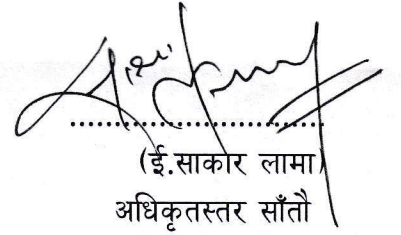 ........................
(ई.साकार लामा)
अधिकृतस्तर साँतौ